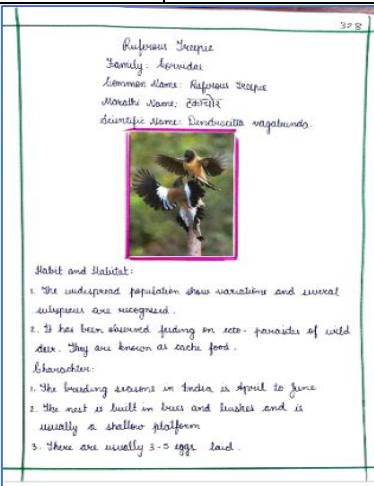 328
Ruferous Treepie
Family: Corvidae
Common Name: Ruferous Treepie
Marathi Name: टकाचोर
Scientific Name: Dendrocitta vagabunda.
Habit and Habitat:
1. The widespread population show variations and several
subspecies are recognised.
2. It has been observed feeding on ecto-parasides of wild
deer. They are known as cache food.
Charachter:
1. The breeding seasons in India is April to June
2. The nest is built in trees and bushes and is
usually a shallow platform
3. There are usually 3-5 eggs laid.